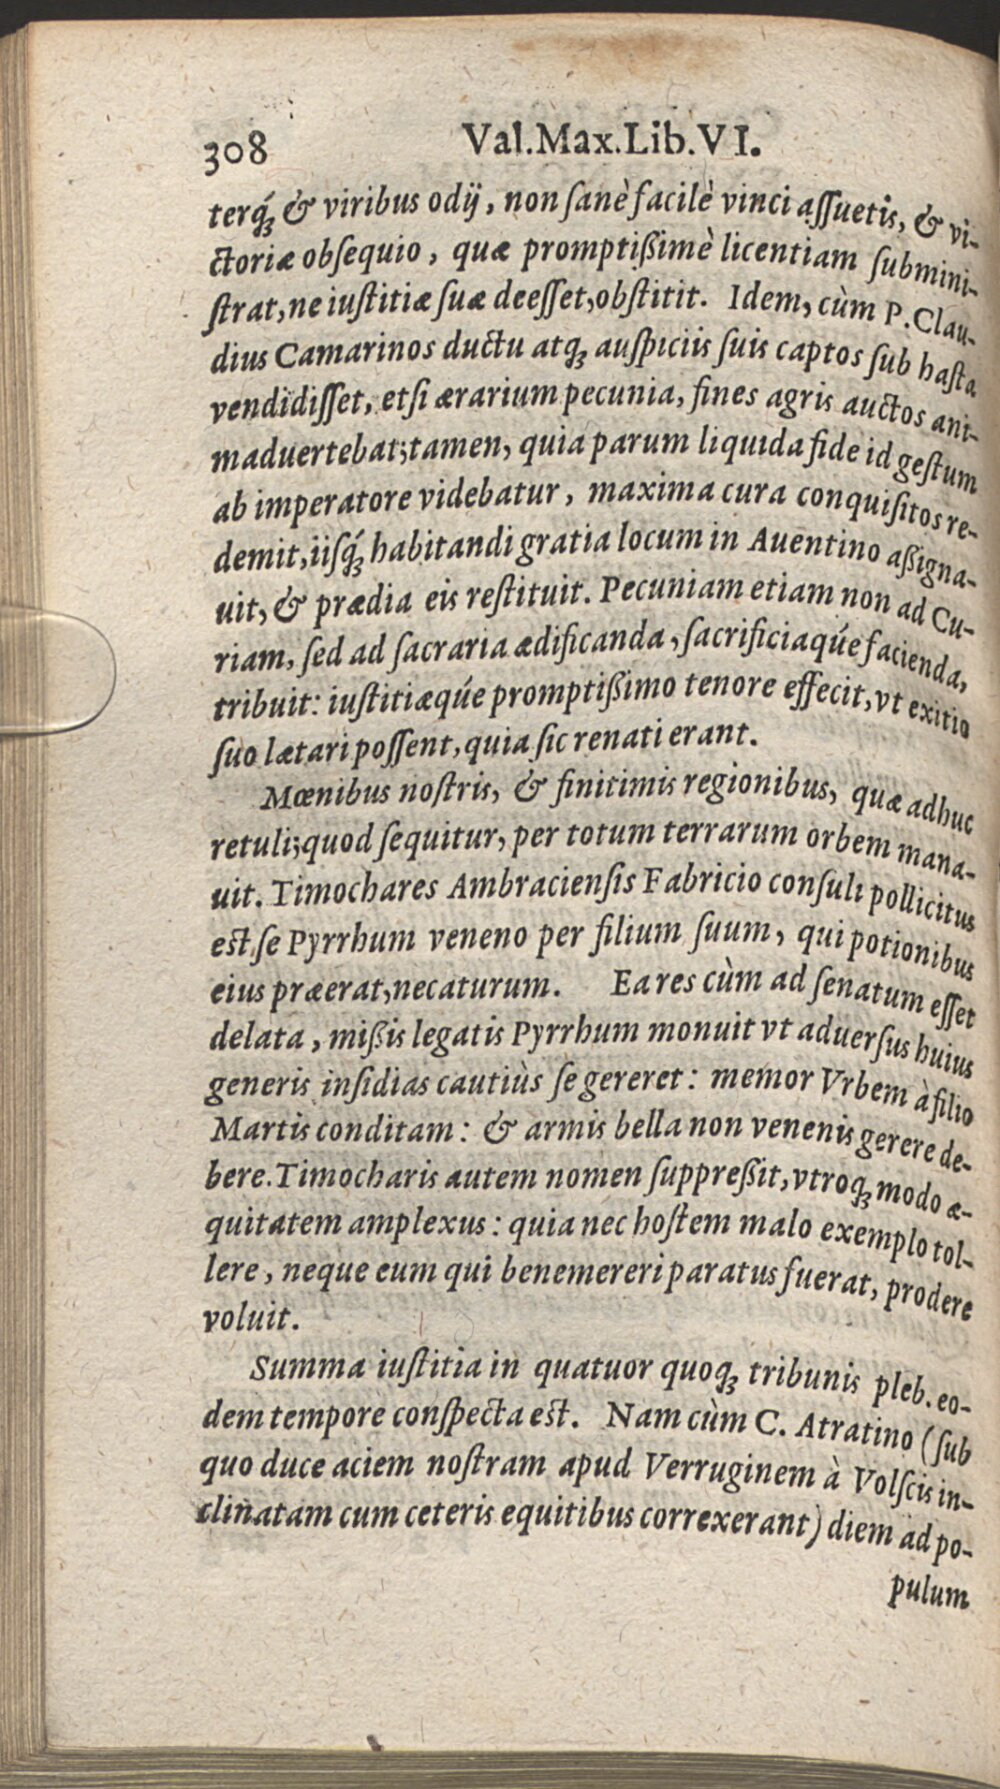 308 Val.Max.Lib.VI.
terq́ꝫ & viribus odij, non ſanè facilè vinci aſſuetis, & vi-
ctoriæ obſequio, quæ promptißimè licentiam ſubmini-
ſtrat, ne iuſtitiæ ſuæ deeſſet, obſtitit. Idem, cùm P. Clau-
dius Camarinos ductu atqꝫ auſpiciis ſuis captos ſub haſta
vendidiſſet, etſi ærarium pecunia, fines agris auctos ani-
maduertebat; tamen, quia parum liquida fide id geſtum
ab imperatore videbatur, maxima cura conquiſitos re-
demit, iiſq́ꝫ habitandi gratia locum in Auentino aßigna-
uit, & prædia eis reſtituit. Pecuniam etiam non ad Cu-
riam, ſed ad ſacraria ædificanda, ſacrificiaqúe facienda,
tribuit: iuſtitiæqúe promptißimo tenore effecit, vt exitio
ſuo lætari poſſent, quia ſic renati erant.
Mœnibus noſtris, & finitimis regionibus, quæ adhuc
retuli; quod ſequitur, per totum terrarum orbem mana-
uit. Timochares Ambracienſis Fabricio conſuli pollicitus
est, ſe Pyrrhum veneno per filium ſuum, qui potionibus
eius præerat, necaturum. Ea res cùm ad ſenatum eſſet
delata, mißis legatis Pyrrhum monuit vt aduerſus huius
generis inſidias cautiùs ſe gereret: memor Vrbem à filio
Martis conditam: & armis bella non venenis gerere de-
bere. Timocharis autem nomen ſuppreßit, vtroqꝫ modo æ-
quitatem amplexus: quia nec hoſtem malo exemplo tol-
lere, neque eum qui benemereri paratus fuerat, prodere
voluit.
Summa iuſtitia in quatuor quoqꝫ tribunis pleb. eo-
dem tempore conſpecta est. Nam cùm C. Atratino (ſub
quo duce aciem noſtram apud Verruginem à Volſcis in-
clinatam cum ceteris equitibus correxerant) diem ad po-
pulum